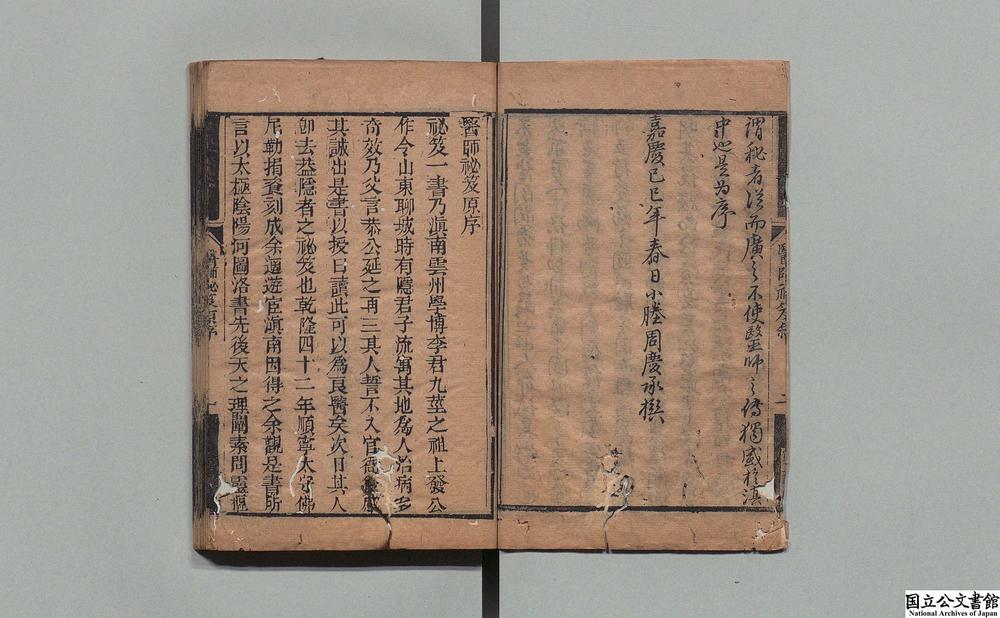 謂秘者從而廣之不使醫師之傳獨盛於滇
中也是爲序
嘉慶己巳年春日小塍周慶承撰
醫師祕笈原序
祕笈一書乃滇南雲州學博李君九莖之祖上發公
作令山東聊城時有隱君子流寓其地爲人治病多
奇效乃父言恭公延之再三其人誓不入官衙感
其誠出是書以授曰讀此可以爲良醫矣次日其人
卽去葢隱者之祕笈也乾隆四十二年順寧太守佛
尼勒捐養刻成余適遊宦滇南因得之余觀是書所
言以太極陰陽河圖洛書先後天之理闡素問靈樞
醫師祕笈原序
一
国立公文書館
National Archives of Japan